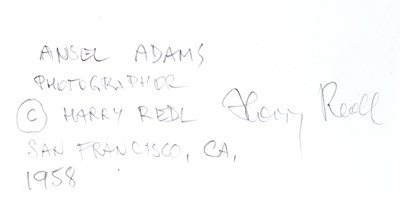 ANSEL ADAMS
PHOTOGRAPHER
© HARRY REDL Harry Redl
SAN FRANCISCO, CA,
1958